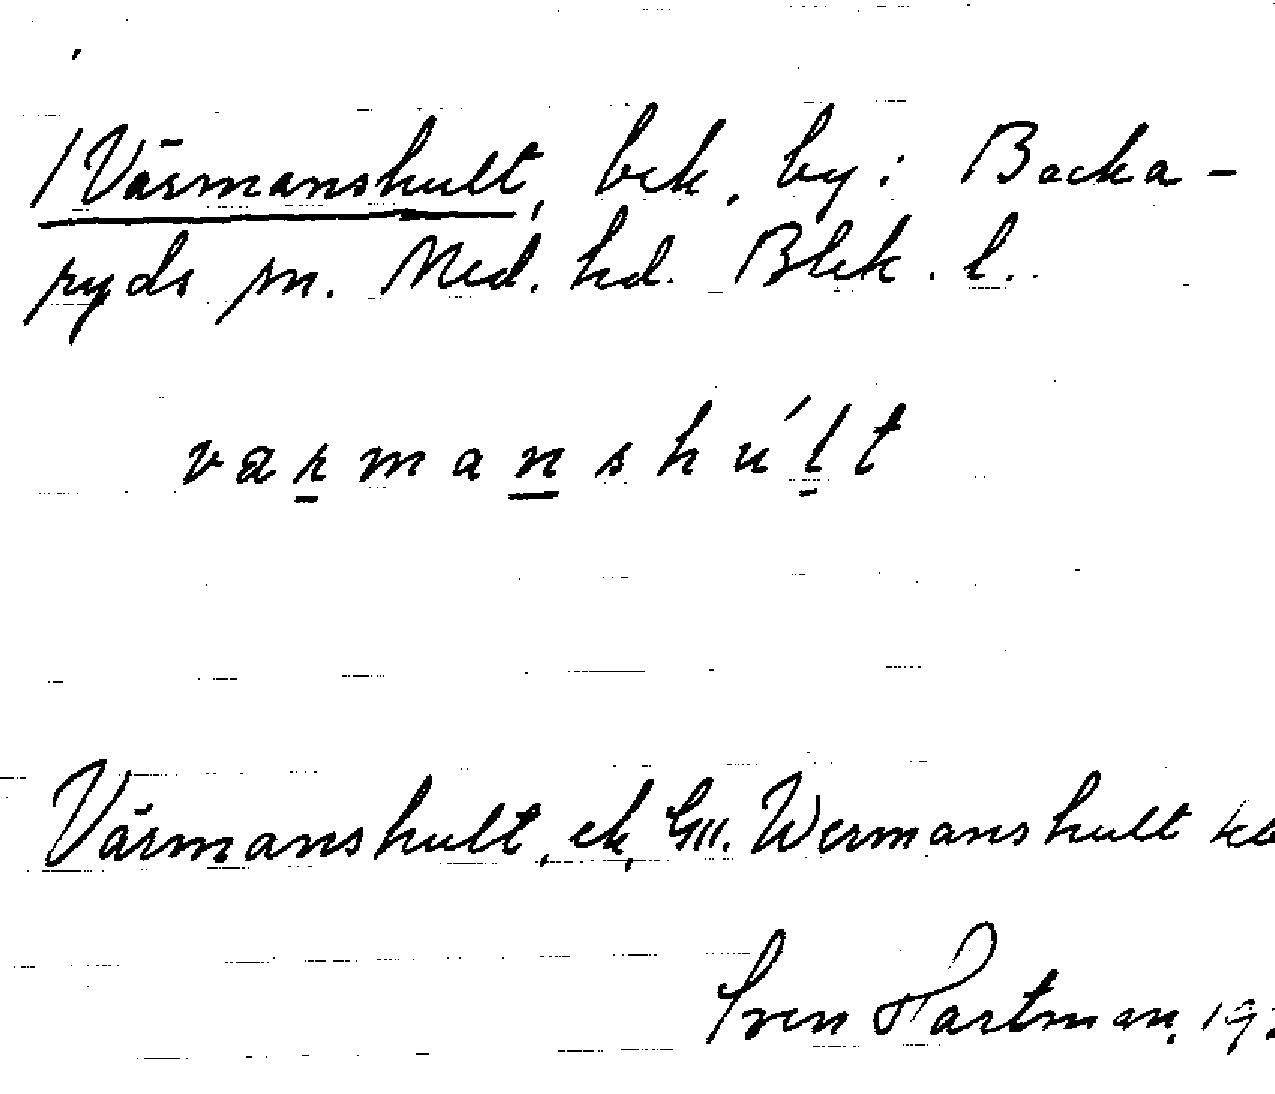 /Värmanshult, bek. by i Backa-
ryds sn. Med. hd. Blek. l.
varmanshúlt
Värmanshult, ek, GII. Wermanshult
Sven Hartman, 19